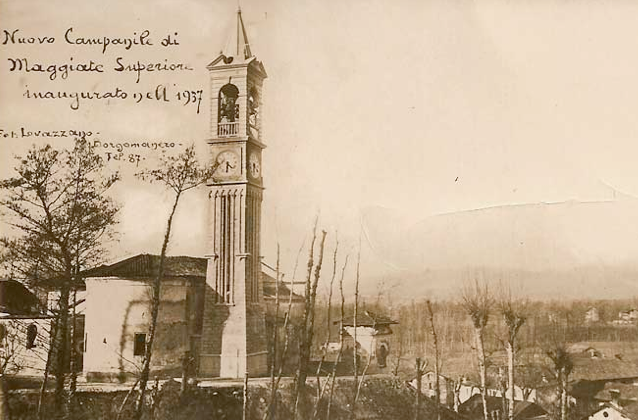 Nuovo Campanile di
Maggiate Superiore
inaugurato nell 1937
Fot. Lovazzano -
Borgomanero -
Tel. 87.